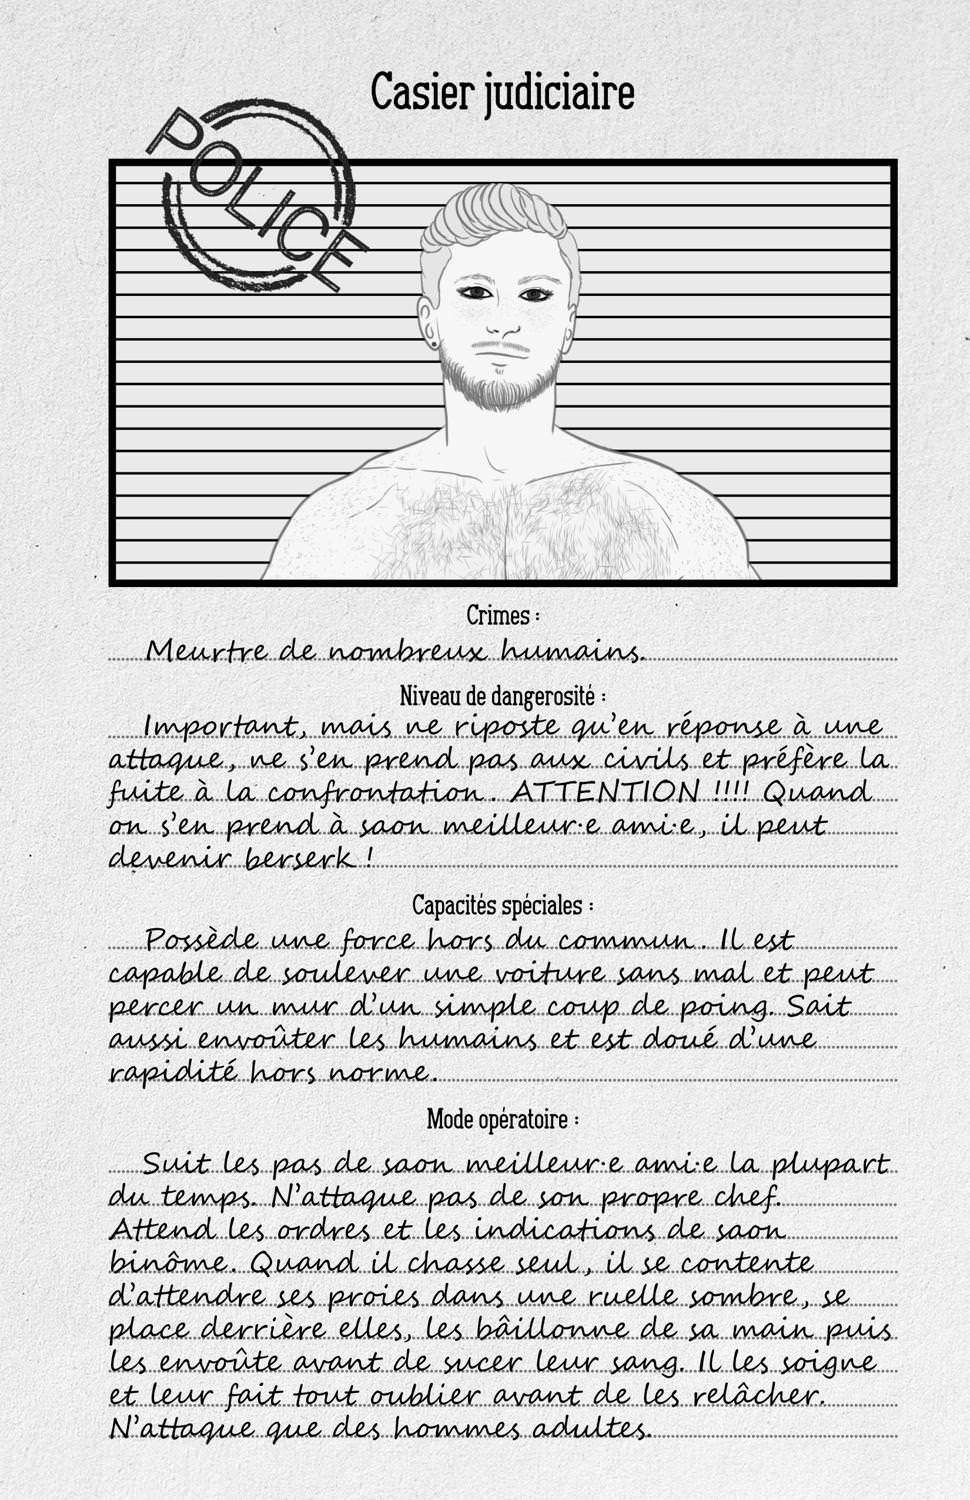 Casier judiciaire
POLICE
Crimes :
Meurtre de nombreux humains.
Niveau de dangerosité :
Important, mais ne riposte qu'en réponse à une
attaque, ne s'en prend pas aux civils et préfère la
fuite à la confrontation. ATTENTION !!!! Quand
on s'en prend à saon meilleur·e ami·e, il peut
devenir berserk !
Capacités spéciales :
Possède une force hors du commun. Il est
capable de soulever une voiture sans mal et peut
percer un mur d'un simple coup de poing. Sait
aussi envoûter les humains et est doué d'une
rapidité hors norme.
Mode opératoire :
Suit les pas de saon meilleur·e ami·e la plupart
du temps. N'attaque pas de son propre chef.
Attend les ordres et les indications de saon
binôme. Quand il chasse seul, il se contente
d'attendre ses proies dans une ruelle sombre, se
place derrière elles, les bâillonne de sa main puis
les envoûte avant de sucer leur sang. Il les soigne
et leur fait tout oublier avant de les relâcher.
N'attaque que des hommes adultes.